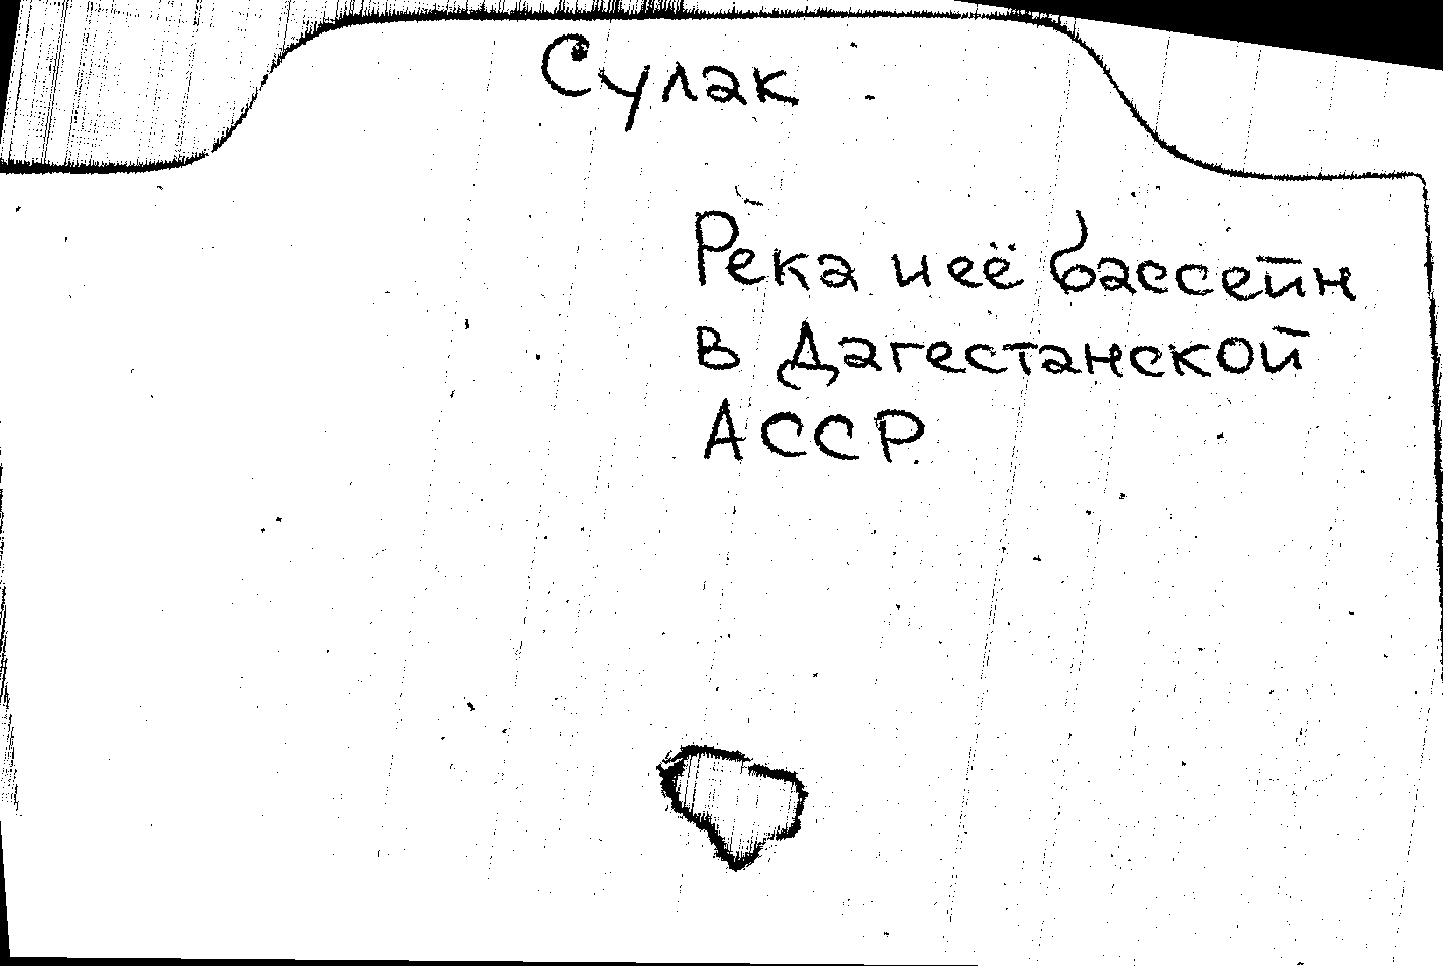 Сулак
Река и её бассейн
в Дагестанской
АССР